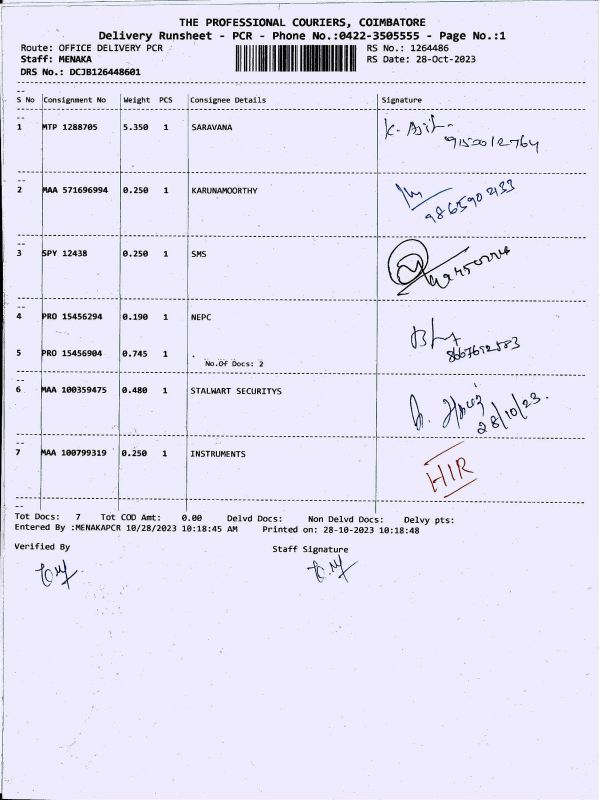 THE PROFESSIONAL COURIERS, COIMBATORE
Delivery Runsheet - PCR - Phone No.:0422-3505555 - Page No.:1
Route: OFFICE DELIVERY PCR RS No.: 1264486
Staff: MENAKA RS Date: 28-Oct-2023
DRS No.: DCJB126448601
S No Consignment No Weight PCS Consignee Details Signature
1 MTP 1288705 5.350 1 SARAVANA
2 MAA 571696994 0.250 1 KARUNAMOORTHY
3 SPY 12438 0.250 1 SMS
4 PRO 15456294 0.190 1 NEPC
5 PRO 15456904 0.745 1
No.Of Docs: 2
6 MAA 100359475 0.480 1 STALWART SECURITYS
28/10/23.
7 MAA 100799319 0.250 1 INSTRUMENTS
HIR
Tot Docs: 7 Tot COD Amt: 0.00 Delvd Docs: Non Delvd Docs: Delvy pts:
Entered By :MENAKAPCR 10/28/2023 10:18:45 AM Printed on: 28-10-2023 10:18:48
Verified By Staff Signature